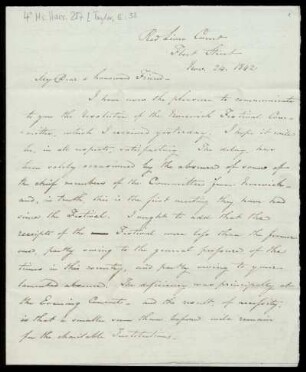 4° Ms. Hass. 287 [Taylor, E.: 32
Red Lion Court
Fleet Street
Nov. 24. 1842
My Dear & honoured Friend—
I have now the pleasure to communicate
to you the Resolution of the Norwich Festival Com-
mittee, which I received yesterday. I hope it will
be, in all respects, satisfactory. The delay has
been solely occasioned by the absence of some of
the chief members of the Committee from Norwich—
and, in truth, this is the first meeting they have had
since the Festival. I ought to add that the
receipts of the — Festival were less than the former
one, partly owing to the general pressure of the
times in this country, and partly owing to your
lamented absence. The deficiency was principally at
the Evening Concerts— and the result, of necessity,
is that a smaller sum than before will remain
for the charitable Institutions.